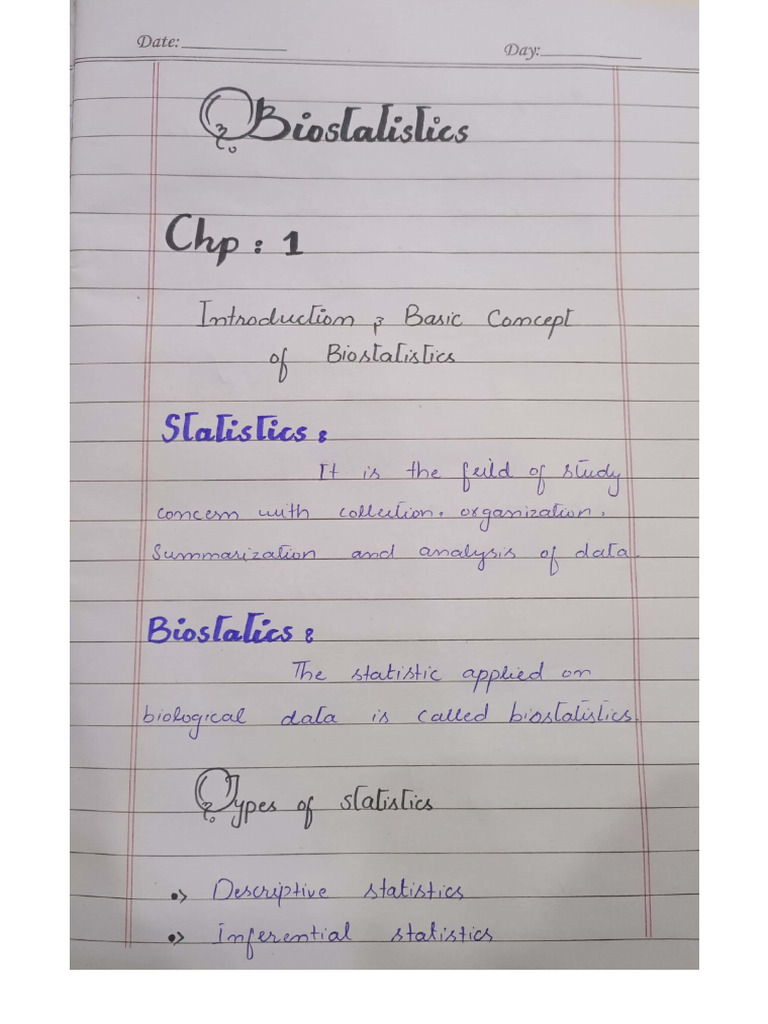 Date:____________ Day:____________
Biostatistics
Chp : 1
Introduction & Basic Concept
of Biostatistics
Statistics :
It is the feild of study
concern with collection, organization,
Summarization and analysis of data.
Biostatics :
The statistic applied on
biological data is called biostatistics.
Types of statistics
•> Descriptive statistics
•> Inferential statistics